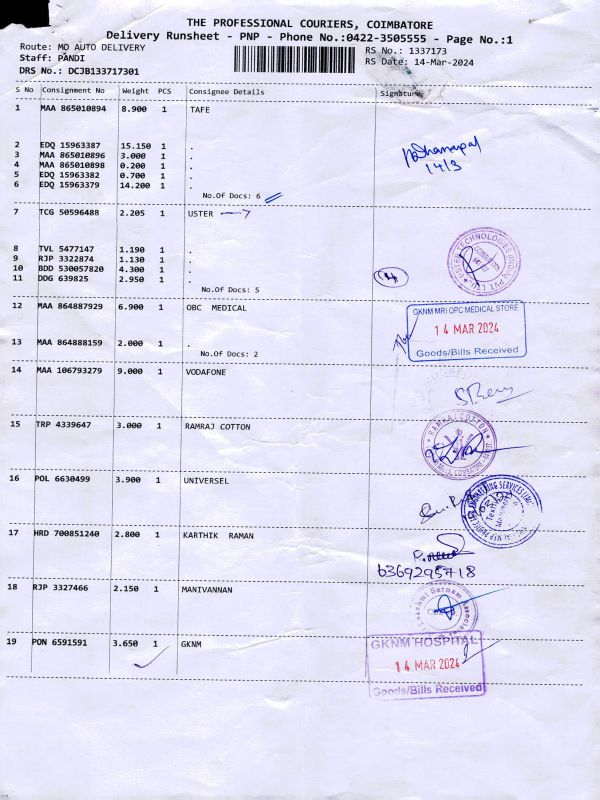 THE PROFESSIONAL COURIERS, COIMBATORE
Delivery Runsheet - PNP - Phone No.:0422-3505555 - Page No.:1
Route: MO AUTO DELIVERY
RS No.: 1337173
Staff: PANDI
RS Date: 14-Mar-2024
DRS No.: DCJB133717301
S No Consignment No Weight PCS Consignee Details Signature
1 MAA 865010894 8.900 1 TAFE
2 EDQ 15963387 15.150 1 .
3 MAA 865010896 3.000 1 .
4 MAA 865010898 0.200 1 .
5 EDQ 15963382 0.700 1 .
6 EDQ 15963379 14.200 1 .
14/3
No.Of Docs: 6
7 TCG 50596488 2.205 1 USTER
8 TVL 5477147 1.190 1 .
9 RJP 3322874 1.130 1 .
10 BDD 530057820 4.300 1 .
11 DDG 639825 2.950 1 .
No.Of Docs: 5
USTER TECHNOLOGIES (INDIA) PVT LTD
12 MAA 864887929 6.900 1 OBC MEDICAL
GKNM MRI OPC MEDICAL STORE
14 MAR 2024
Goods/Bills Received
13 MAA 864888159 2.000 1 .
No.Of Docs: 2
14 MAA 106793279 9.000 1 VODAFONE
15 TRP 4339647 3.000 1 RAMRAJ COTTON
RAMRAJ COTTON
16 POL 6630499 3.900 1 UNIVERSEL
17 HRD 700851240 2.800 1 KARTHIK RAMAN
6369295718
18 RJP 3327466 2.150 1 MANIVANNAN
19 PON 6591591 3.650 1 GKNM
GKNM HOSPITAL
14 MAR 2024
Goods/Bills Received